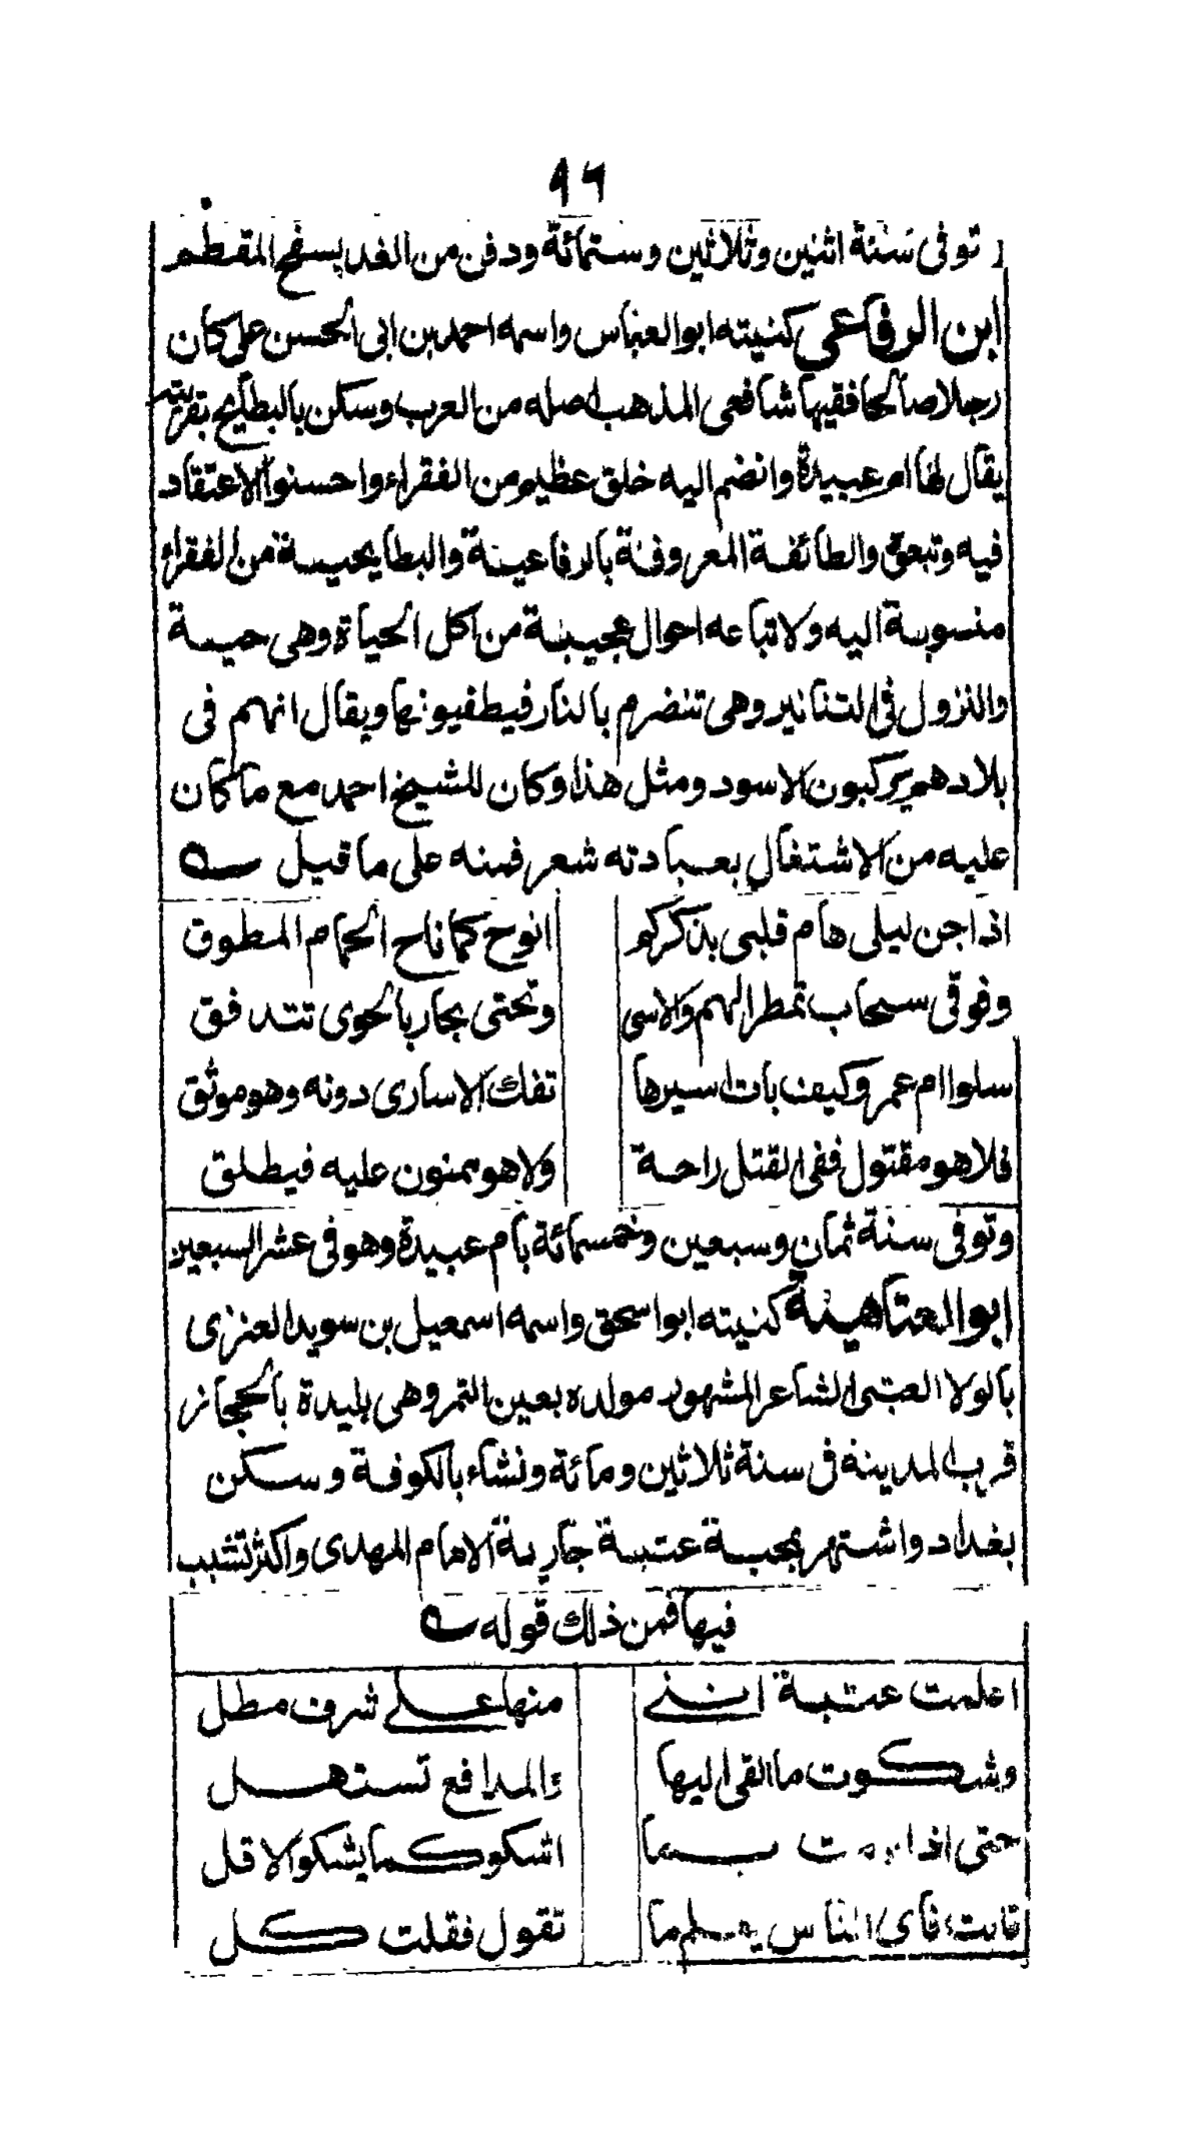 ٩٦
توفى سنة اثنين وثلاثين وستمائة ودفن من الغد بسفح المقطم
ابن الرفاعي كنيته ابو العباس واسمه احمد بن ابى الحسن على كان
رجلا صالحا فقيها شافعى المذهب اصله من العرب وسكن بالبطايح بقرية
يقال لها ام عبيدة وانضم اليه خلق عظيم من الفقراء واحسنوا الاعتقاد
فيه وتبعوه والطائفة المعروفة بالرفاعية والبطايحية من الفقراء
منسوبة اليه ولاتباعه احوال عجيبة من اكل الحياة وهى حية
والنزول فى التنانير وهى تتضرم بالنار فيطفيونها ويقال انهم فى
بلادهم يركبون الاسود ومثل هذا وكان للشيخ احمد مع ما كان
عليه من الاشتغال بعبادته شعر فمنه على ما قيل
اذا جن ليلى هام قلبى بذكركم انوح كما ناح الحمام المطوق
وفوقى سحاب تمطر الهم والاسى وتحتى بحار بالجوى تتدفق
سلوا ام عمرو كيف بات اسيرها تفك الاسارى دونه وهو موثق
فلا هو مقتول ففى القتل راحة ولا هو ممنون عليه فيطلق
وتوفى سنة ثمان وسبعين وخمسمائة بام عبيدة وهو فى عشر السبعين
ابو العتاهية كنيته ابو اسحق واسمه اسمعيل بن سويد العنزى
بالولا العتبى الشاعر المشهور مولده بعين التمر وهى بليدة بالحجاز
قريب المدينة فى سنة ثلاثين ومائة ونشاء بالكوفة وسكن
بغداد واشتهر بمحبة عتبة جارية الامام المهدى واكثر تشبب
فيها فمن ذلك قوله
اعلمت عتبة اننى منها على شرف مطل
وشكوت ما القى اليها والمدافع تستهل
حتى اذا برمت بما اشكو كما يشكو الاقل
قالت فاى الناس يعلم ما تقول فقلت كل